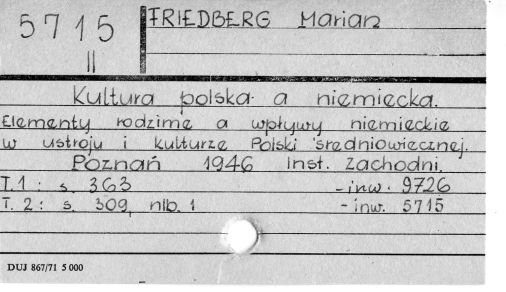 5715
II
FRIEDBERG Marian
Kultura polska a niemiecka.
Elementy rodzime a wpływy niemieckie
w ustroju i kulturze Polski średniowiecznej.
Poznań 1946 Inst. Zachodni.
T.1 : s. 363 - inw. 9726
T. 2 : s. 309, nlb. 1 - inw. 5715
DUJ 867/71 5 000